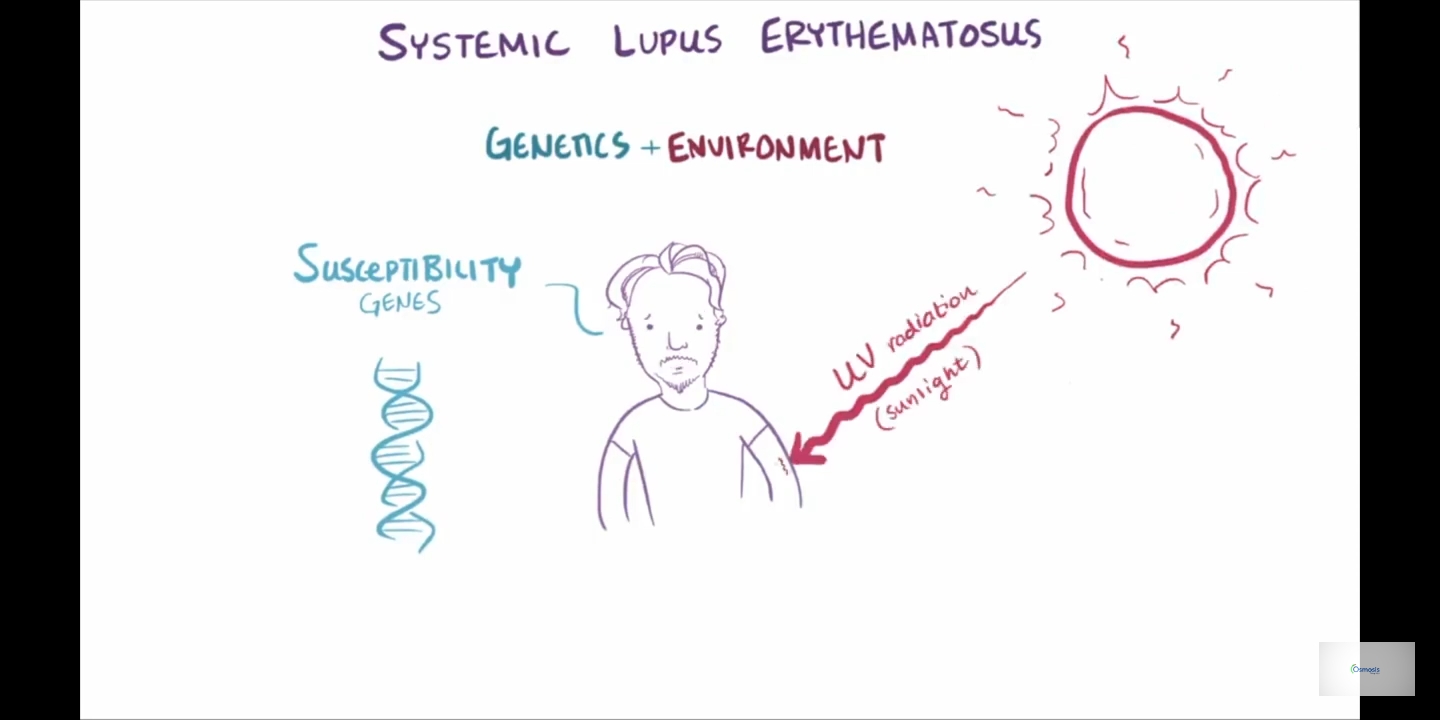 SYSTEMIC LUPUS ERYTHEMATOSUS
GENETICS + ENVIRONMENT
SUSCEPTIBILITY
GENES
UV radiation
(sunlight)
Osmosis